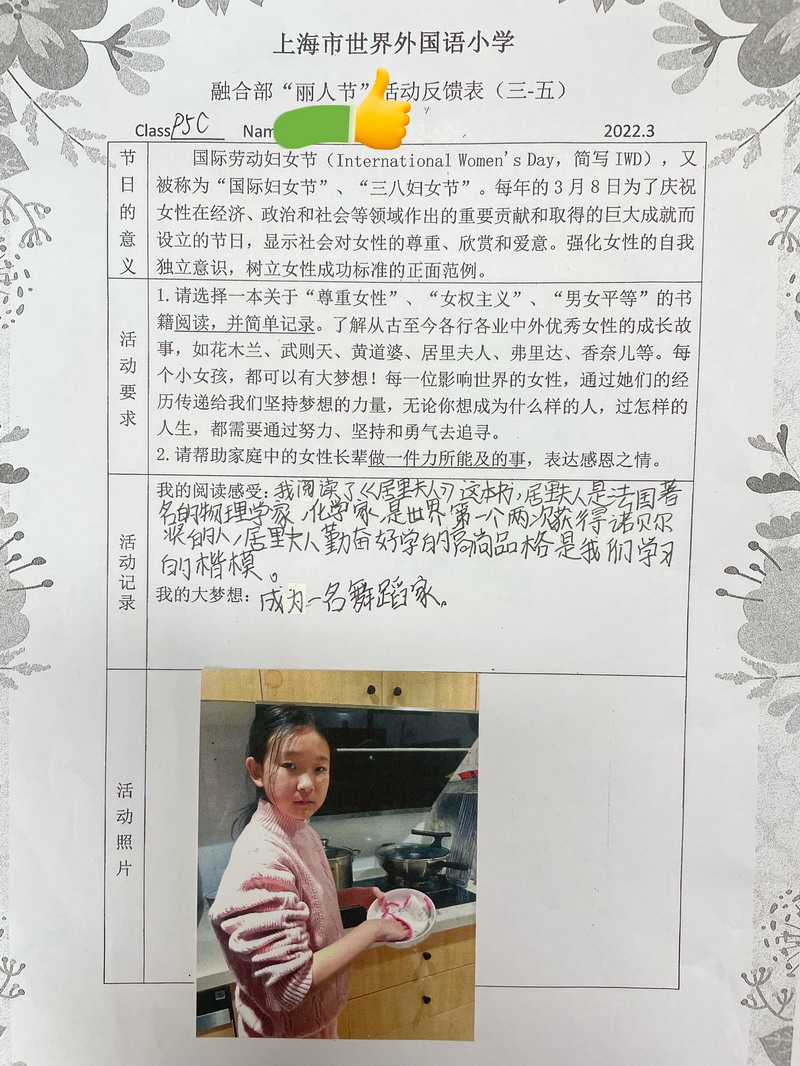 上海市世界外国语小学
融合部“丽人节”活动反馈表（三-五）
Class P5C Nam 2022.3
节日的意义
国际劳动妇女节（International Women's Day，简写 IWD），又
被称为“国际妇女节”、“三八妇女节”。每年的 3 月 8 日为了庆祝
女性在经济、政治和社会等领域作出的重要贡献和取得的巨大成就而
设立的节日，显示社会对女性的尊重、欣赏和爱意。强化女性的自我
独立意识，树立女性成功标准的正面范例。
活动要求
1.请选择一本关于“尊重女性”、“女权主义”、“男女平等”的书
籍阅读，并简单记录。了解从古至今各行各业中外优秀女性的成长故
事，如花木兰、武则天、黄道婆、居里夫人、弗里达、香奈儿等。每
个小女孩，都可以有大梦想！每一位影响世界的女性，通过她们的经
历传递给我们坚持梦想的力量，无论你想成为什么样的人，过怎样的
人生，都需要通过努力、坚持和勇气去追寻。
2.请帮助家庭中的女性长辈做一件力所能及的事，表达感恩之情。
活动记录
我的阅读感受：我阅读了《居里夫人》这本书，居里夫人是法国著
名的物理学家、化学家，是世界第一个两次获得诺贝尔
奖的人，居里夫人勤奋好学的高尚品格是我们学习
的楷模。
我的大梦想：成为一名舞蹈家。
活动照片